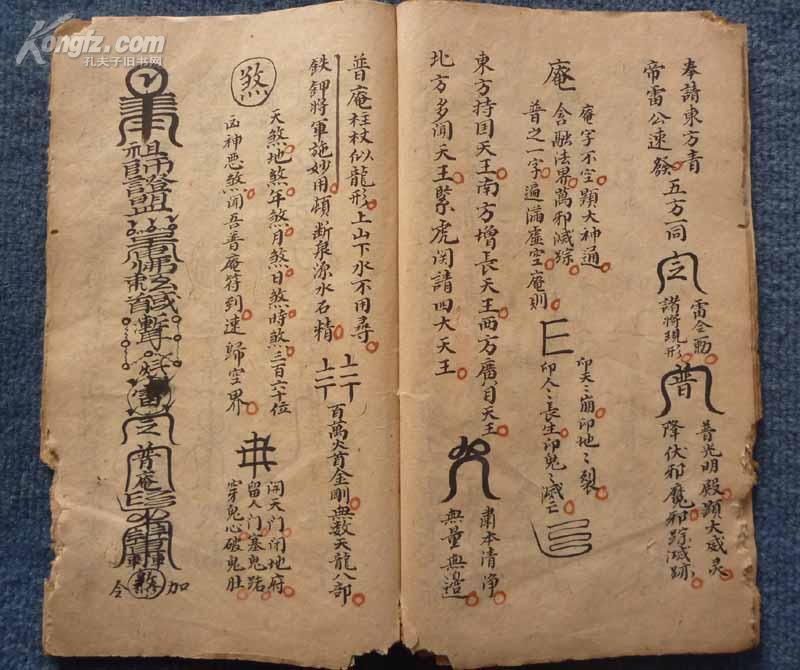 奉請東方青
帝雷公速發五方一同
雷令勅
諸將現形
普
普光明殿顯大威灵
降伏邪魔邪踪滅跡
庵
庵字不空顯大神通
含融法界萬邪滅踪
普之一字遍滿虛空庵則
印天〻崩印地〻裂
印人〻長生印鬼〻滅亡
東方持国天王南方增長天王西方廣目天王
北方多闻天王緊虎闭請四大天王
肅本清净
無量無邉
普庵柱杖似龍形上山下水不用尋
鉄鉀將軍施妙用頓断泉源水石精
百萬火首金剛無数天龍八部
煞
天煞地煞年煞月煞日煞時煞三百六十位
凶神悪煞闻吾普庵符到速歸空界
開天门闭地府
留人门塞鬼路
穿鬼心破鬼肚
祖師證盟
普庵
煞
加
令
Kongfz.com
孔夫子旧书网